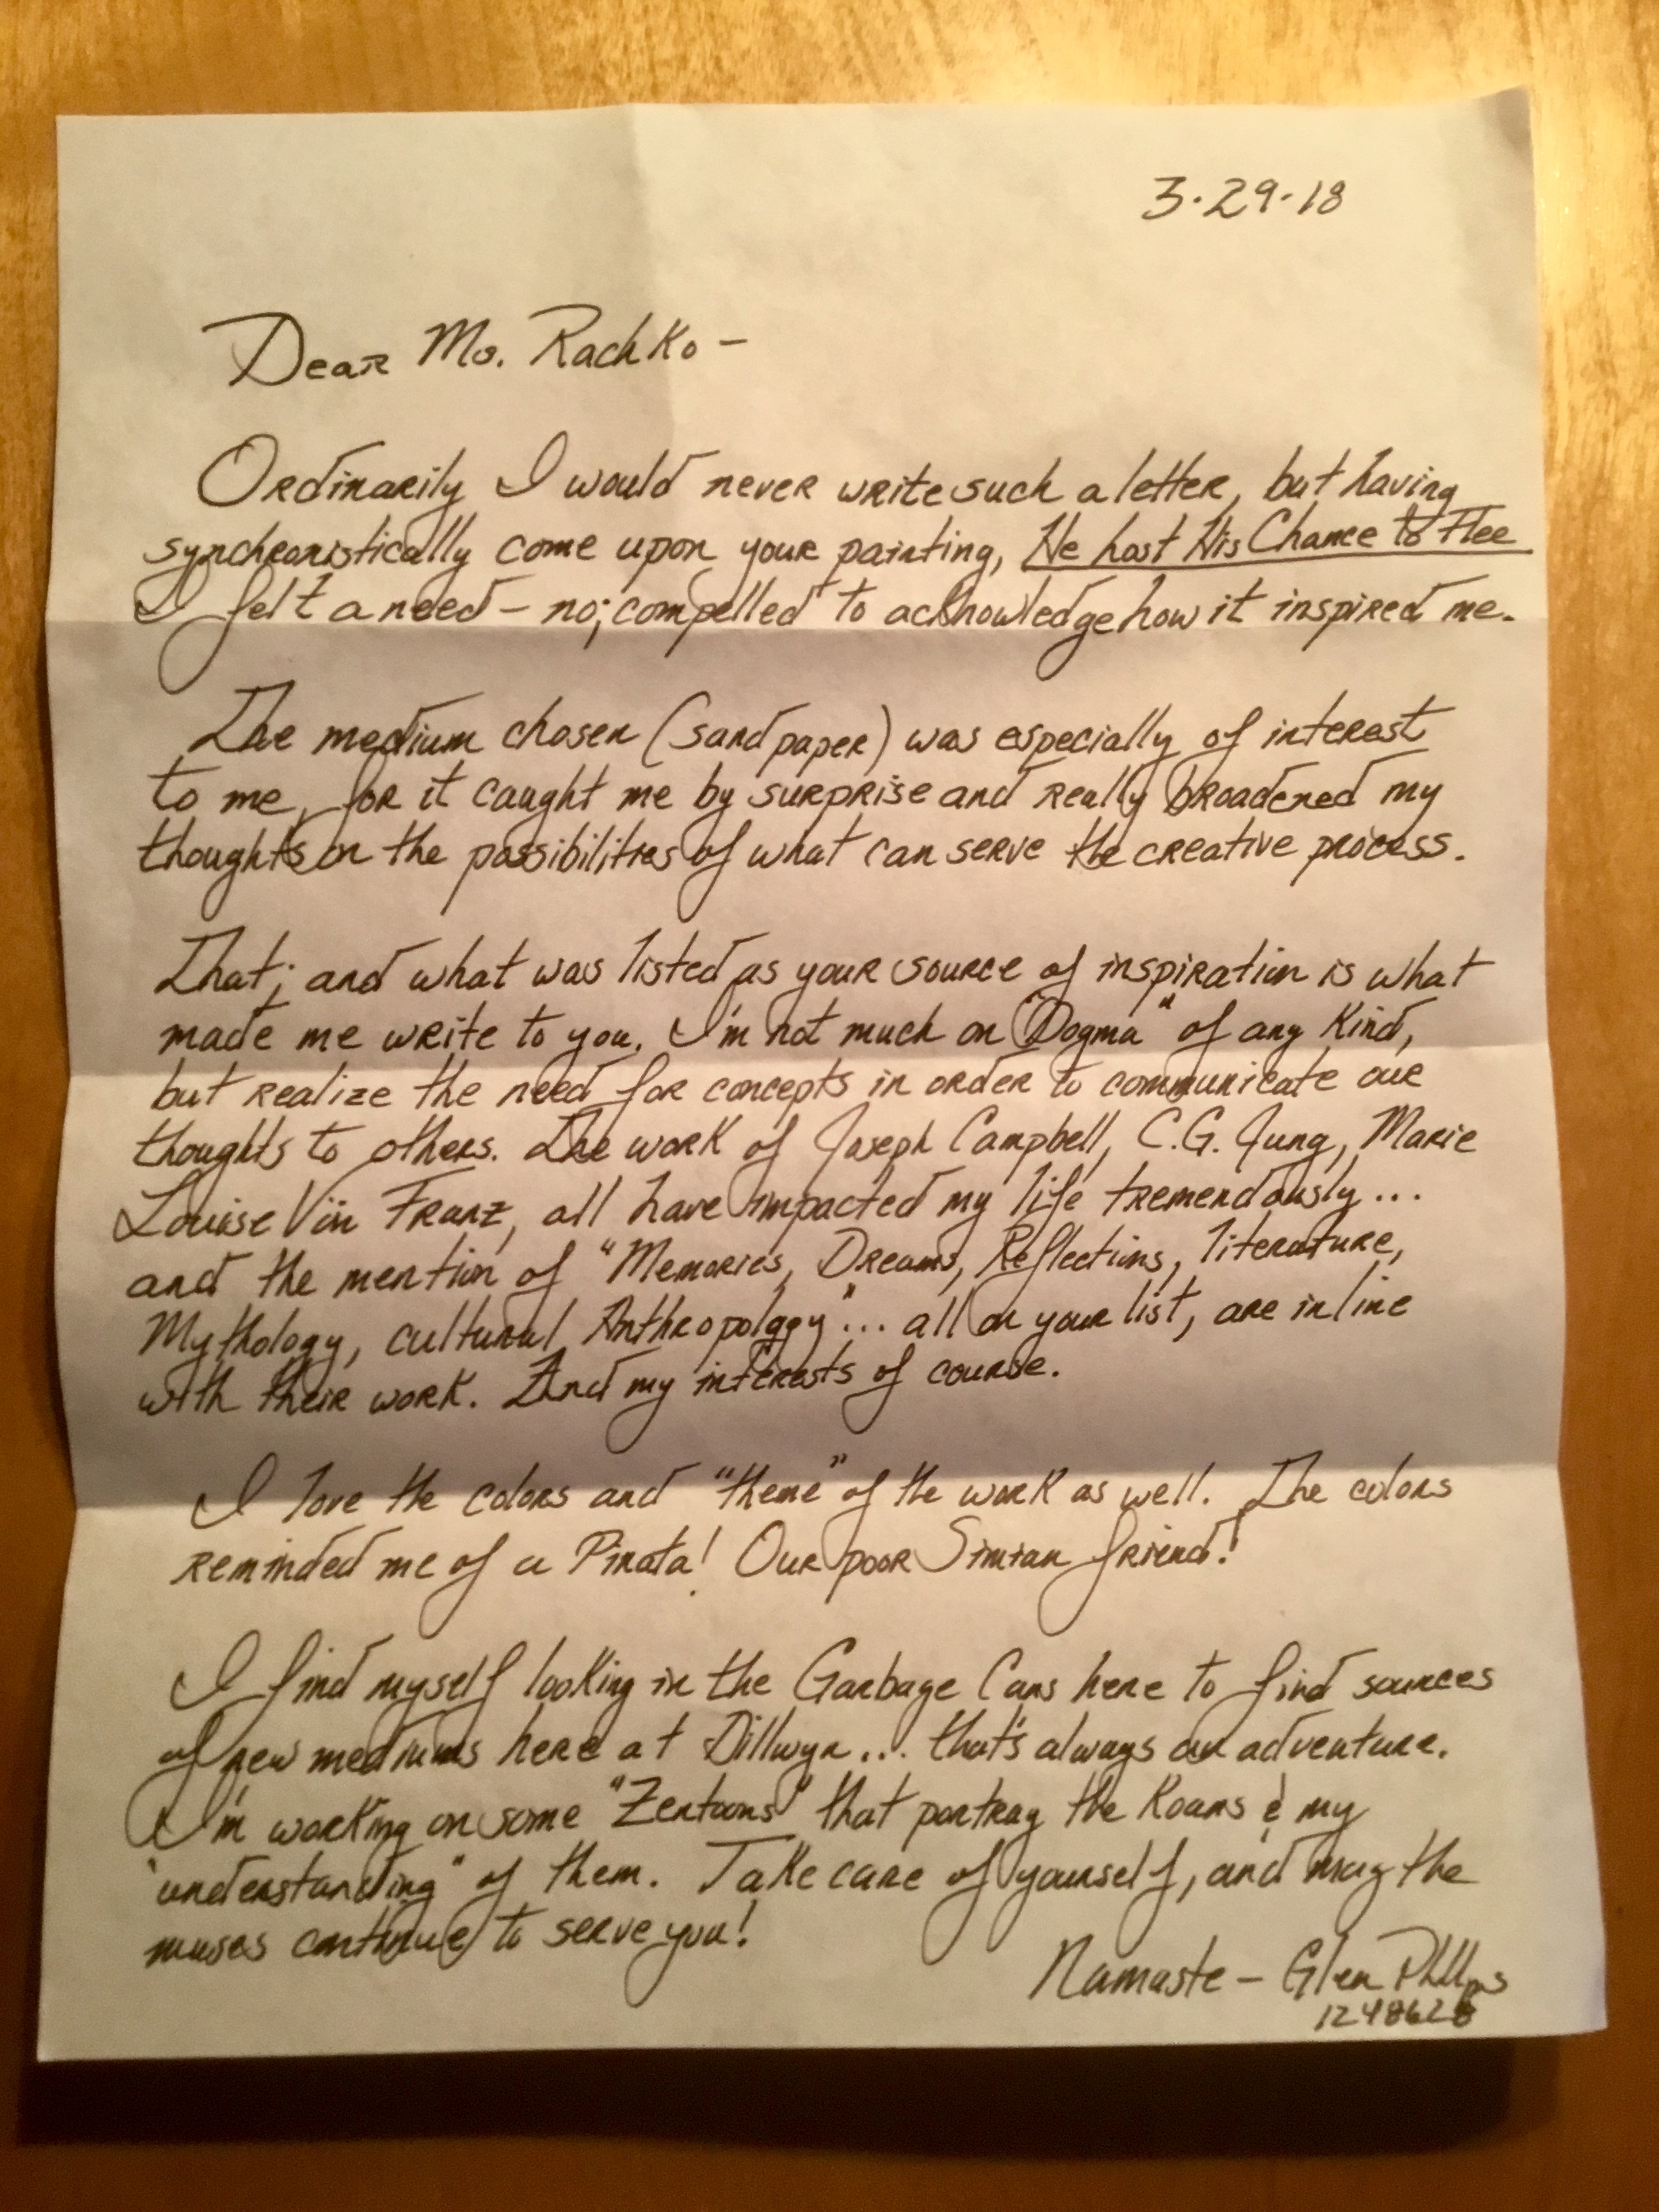 3.29.18
Dear Ms. Rachko -
Ordinarily I would never write such a letter, but having
synchronistically come upon your painting, He Lost His Chance to Flee
I felt a need - no; compelled to acknowledge how it inspired me.
The medium chosen (sandpaper) was especially of interest
to me, for it caught me by surprise and really broadened my
thoughts on the possibilities of what can serve the creative process.
That; and what was listed as your source of inspiration is what
made me write to you. I'm not much on "Dogma" of any kind,
but realize the need for concepts in order to communicate our
thoughts to others. The work of Joseph Campbell, C.G. Jung, Marie
Louise Von Franz, all have impacted my life tremendously...
and the mention of "Memories, Dreams, Reflections, literature,
Mythology, cultural Anthropology"... all on your list, are inline
with their work. And my interests of course.
I love the colors and "theme" of the work as well. The colors
reminded me of a Pinata! Our poor Simian friend!
I find myself looking in the Garbage Cans here to find sources
of new mediums here at Dillwyn... that's always an adventure.
I'm working on some "Zentoons" that portray the Koans & my
"understanding" of them. Take care of yourself, and may the
muses continue to serve you!
Namaste - Glen Phillips
1248628